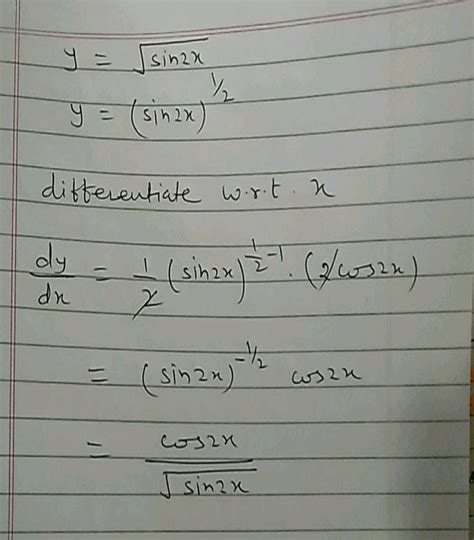 y = √sin2x
y = (sin2x)^1/2
differentiate w.r.t. x
dy/dx = 1/2 (sin2x)^(1/2 -1) . (2cos2x)
= (sin2x)^-1/2 cos2x
= cos2x/√sin2x